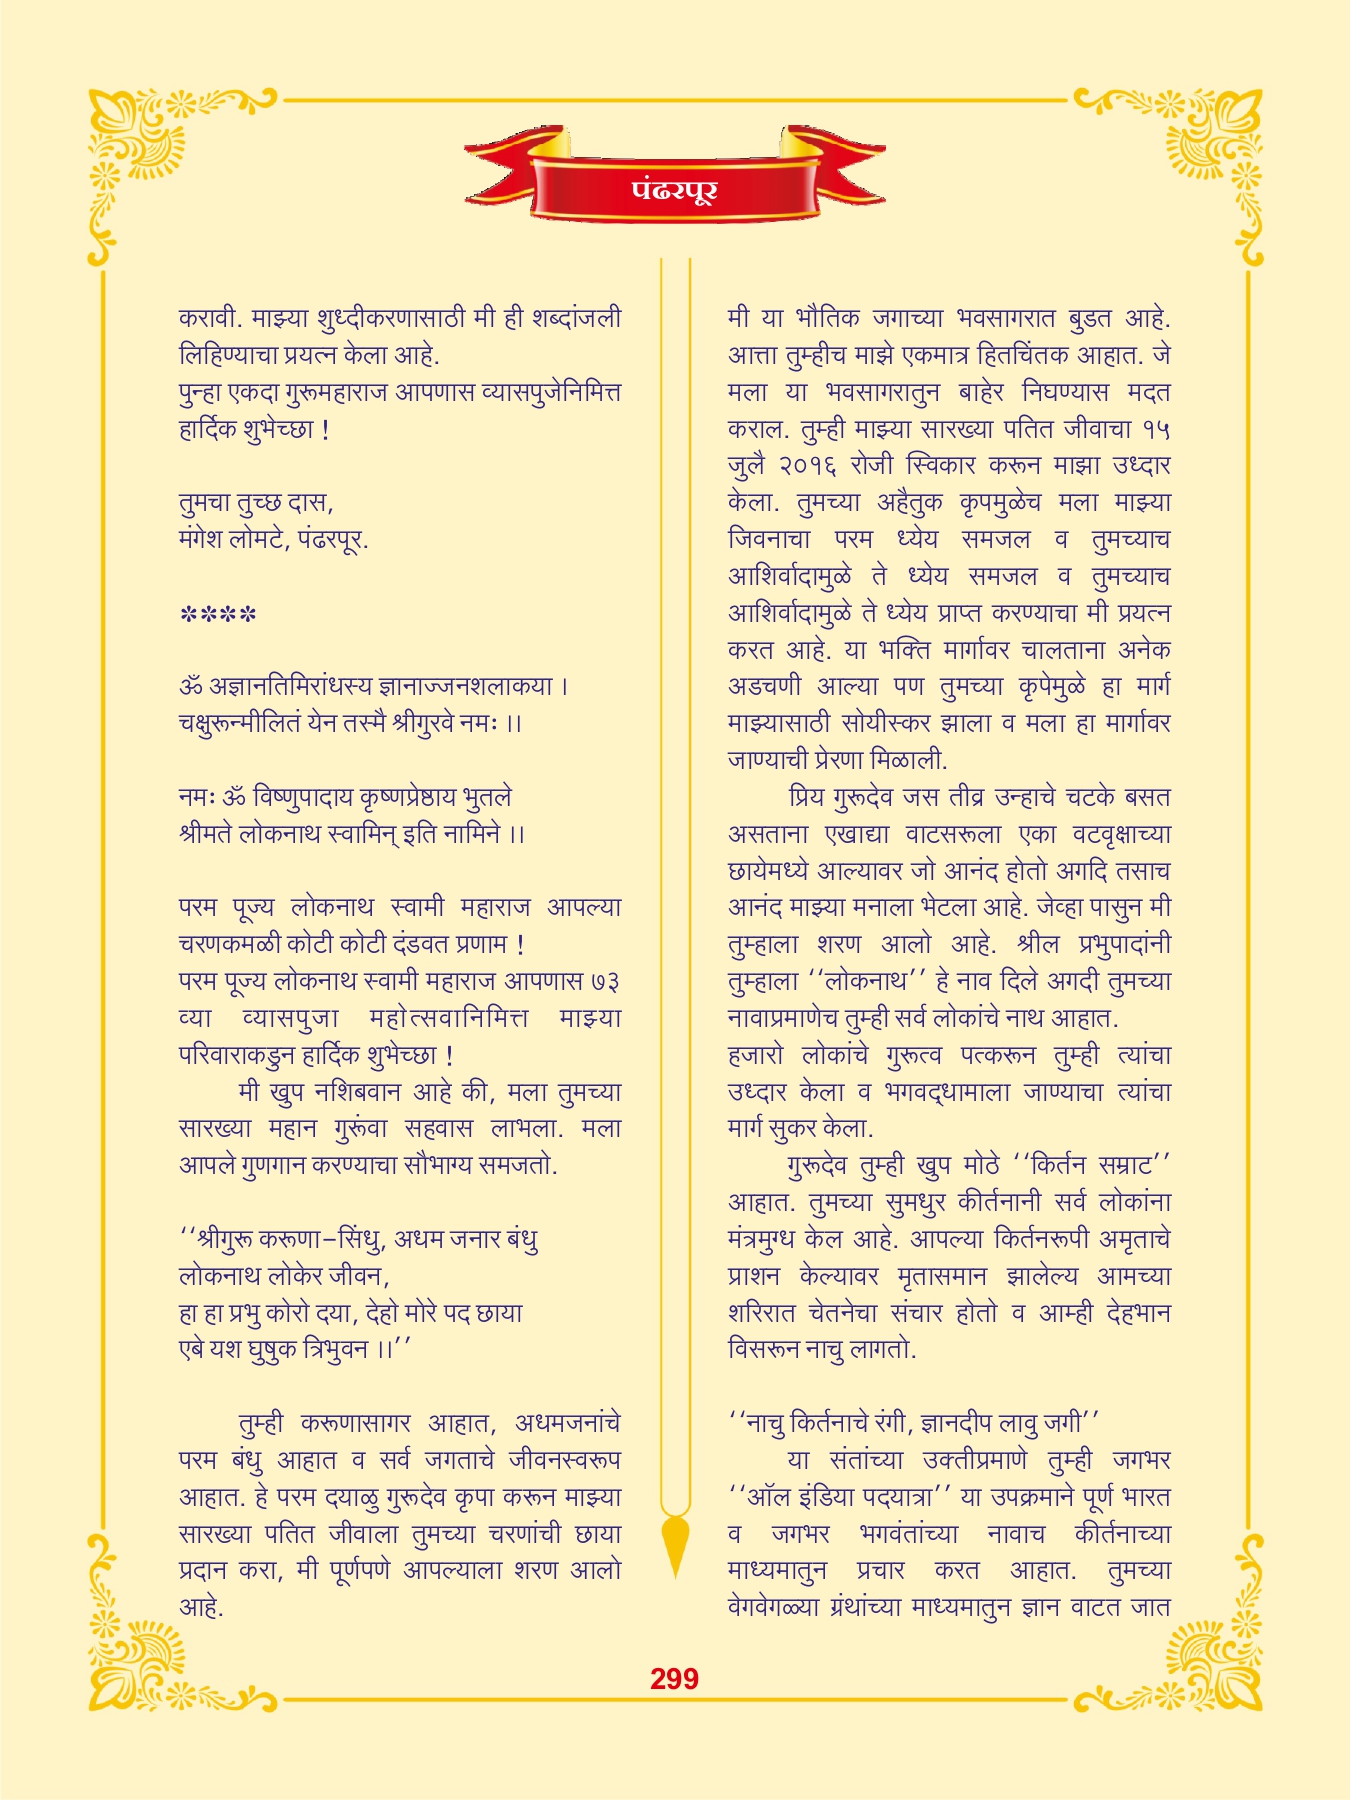 पंढरपूर
करावी. माझ्या शुध्दीकरणासाठी मी ही शब्दांजली
लिहिण्याचा प्रयत्न केला आहे.
पुन्हा एकदा गुरूमहाराज आपणास व्यासपुजेनिमित्त
हार्दिक शुभेच्छा !
तुमचा तुच्छ दास,
मंगेश लोमटे, पंढरपूर.
****
ॐ अज्ञानतिमिरांधस्य ज्ञानाज्जनशलाकया ।
चक्षुरून्मीलितं येन तस्मै श्रीगुरवे नमः ।।
नमः ॐ विष्णुपादाय कृष्णप्रेष्ठाय भुतले
श्रीमते लोकनाथ स्वामिन् इति नामिने ।।
परम पूज्य लोकनाथ स्वामी महाराज आपल्या
चरणकमळी कोटी कोटी दंडवत प्रणाम !
परम पूज्य लोकनाथ स्वामी महाराज आपणास ७३
व्या व्यासपुजा महोत्सवानिमित्त माझ्या
परिवाराकडुन हार्दिक शुभेच्छा !
मी खुप नशिबवान आहे की, मला तुमच्या
सारख्या महान गुरूंवा सहवास लाभला. मला
आपले गुणगान करण्याचा सौभाग्य समजतो.
‘‘श्रीगुरू करूणा–सिंधु, अधम जनार बंधु
लोकनाथ लोकेर जीवन,
हा हा प्रभु कोरो दया, देहो मोरे पद छाया
एबे यश घुषुक त्रिभुवन ।।’’
तुम्ही करूणासागर आहात, अधमजनांचे
परम बंधु आहात व सर्व जगताचे जीवनस्वरूप
आहात. हे परम दयाळु गुरूदेव कृपा करून माझ्या
सारख्या पतित जीवाला तुमच्या चरणांची छाया
प्रदान करा, मी पूर्णपणे आपल्याला शरण आलो
आहे.
मी या भौतिक जगाच्या भवसागरात बुडत आहे.
आत्ता तुम्हीच माझे एकमात्र हितचिंतक आहात. जे
मला या भवसागरातुन बाहेर निघण्यास मदत
कराल. तुम्ही माझ्या सारख्या पतित जीवाचा १५
जुलै २०१६ रोजी स्विकार करून माझा उध्दार
केला. तुमच्या अहैतुक कृपमुळेच मला माझ्या
जिवनाचा परम ध्येय समजल व तुमच्याच
आशिर्वादामुळे ते ध्येय समजल व तुमच्याच
आशिर्वादामुळे ते ध्येय प्राप्त करण्याचा मी प्रयत्न
करत आहे. या भक्ति मार्गावर चालताना अनेक
अडचणी आल्या पण तुमच्या कृपेमुळे हा मार्ग
माझ्यासाठी सोयीस्कर झाला व मला हा मार्गावर
जाण्याची प्रेरणा मिळाली.
प्रिय गुरूदेव जस तीव्र उन्हाचे चटके बसत
असताना एखाद्या वाटसरूला एका वटवृक्षाच्या
छायेमध्ये आल्यावर जो आनंद होतो अगदि तसाच
आनंद माझ्या मनाला भेटला आहे. जेव्हा पासुन मी
तुम्हाला शरण आलो आहे. श्रील प्रभुपादांनी
तुम्हाला ‘‘लोकनाथ’’ हे नाव दिले अगदी तुमच्या
नावाप्रमाणेच तुम्ही सर्व लोकांचे नाथ आहात.
हजारो लोकांचे गुरूत्व पत्करून तुम्ही त्यांचा
उध्दार केला व भगवद्धामाला जाण्याचा त्यांचा
मार्ग सुकर केला.
गुरूदेव तुम्ही खुप मोठे ‘‘किर्तन सम्राट’’
आहात. तुमच्या सुमधुर कीर्तनानी सर्व लोकांना
मंत्रमुग्ध केल आहे. आपल्या किर्तनरूपी अमृताचे
प्राशन केल्यावर मृतासमान झालेल्य आमच्या
शरिरात चेतनेचा संचार होतो व आम्ही देहभान
विसरून नाचु लागतो.
‘‘नाचु किर्तनाचे रंगी, ज्ञानदीप लावु जगी’’
या संतांच्या उक्तीप्रमाणे तुम्ही जगभर
‘‘ऑल इंडिया पदयात्रा’’ या उपक्रमाने पूर्ण भारत
व जगभर भगवंतांच्या नावाच कीर्तनाच्या
माध्यमातुन प्रचार करत आहात. तुमच्या
वेगवेगळ्या ग्रंथांच्या माध्यमातुन ज्ञान वाटत जात
299